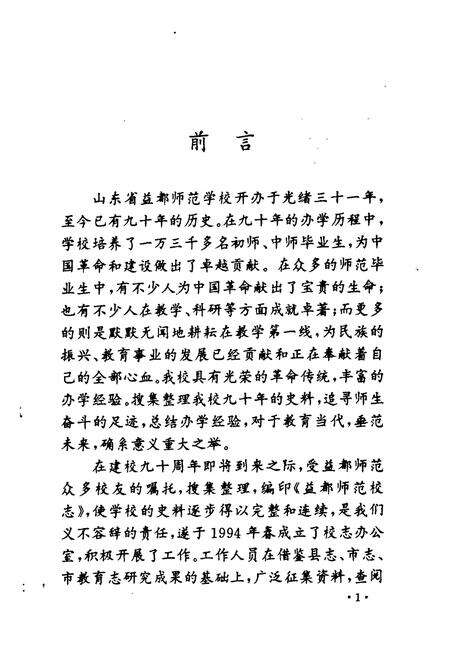 前言
山东省益都师范学校开办于光绪三十一年，
至今已有九十年的历史。在九十年的办学历程中，
学校培养了一万三千多名初师、中师毕业生，为中
国革命和建设做出了卓越贡献。在众多的师范毕
业生中，有不少人为中国革命献出了宝贵的生命；
也有不少人在教学、科研等方面成就卓著；而更多
的则是默默无闻地耕耘在教学第一线，为民族的
振兴、教育事业的发展已经贡献和正在奉献着自
己的全部心血。我校具有光荣的革命传统，丰富的
办学经验。搜集整理我校九十年的史料，追寻师生
奋斗的足迹，总结办学经验，对于教育当代，垂范
未来，确系意义重大之举。
在建校九十周年即将到来之际，受益都师范
众多校友的嘱托，搜集整理，编印《益都师范校
志》，使学校的史料逐步得以完整和连续，是我们
义不容辞的责任，遂于1994年春成立了校志办公
室，积极开展了工作。工作人员在借鉴县志、市志、
市教育志研究成果的基础上，广泛征集资料，查阅
·1·